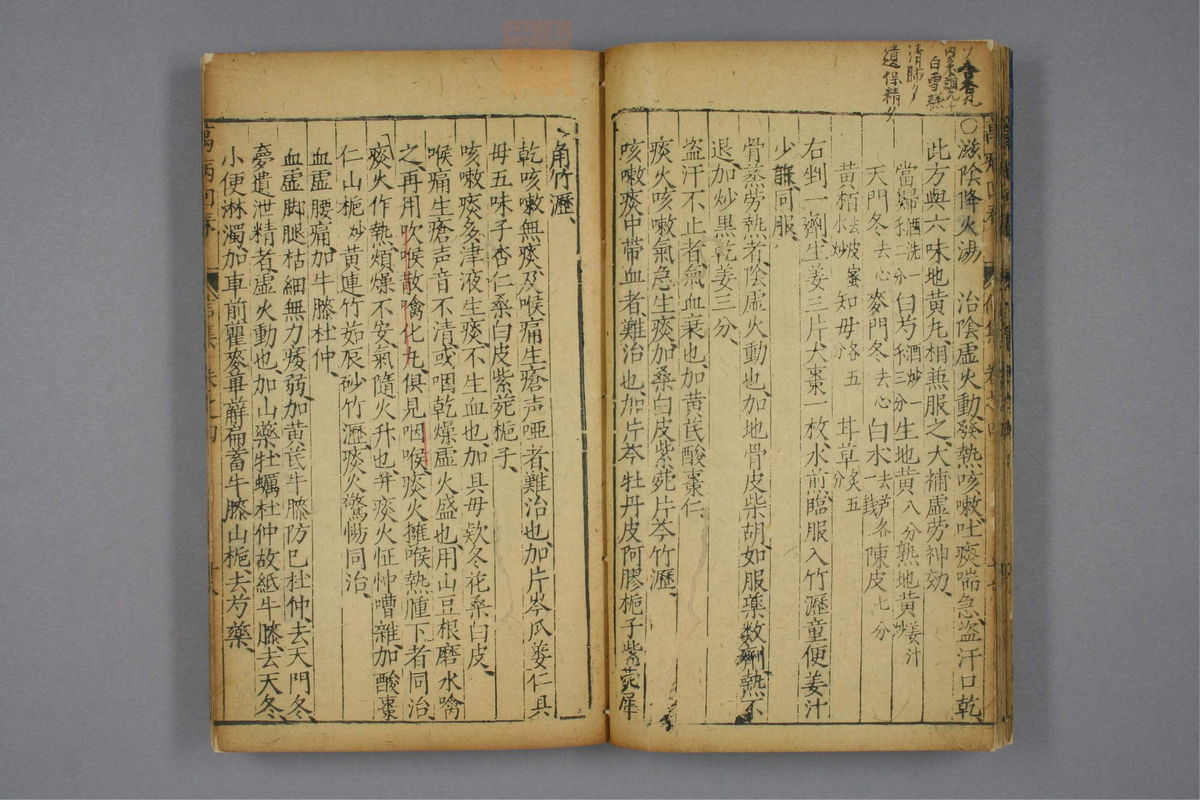 清肺
遺保精
白雪糕
○滋陰降火湯 治陰虛火動發熱咳嗽吐痰喘急盜汗口乾
此方與六味地黃丸相兼服之大補虛勞神効
當歸酒洗一錢二分 白芍酒炒一錢三分 生地黃八分 熟地黃姜汁炒
天門冬去心 麥門冬去心 白朮去芦各一錢 陳皮七分
黃栢去皮蜜水炒 知母各五分 甘草炙五分
右剉一劑生姜三片大棗一枚水煎臨服入竹瀝童便姜汁
少許同服
骨蒸勞熱者陰虛火動也加地骨皮柴胡如服藥数劑熱不
退加炒黑乾姜三分
盜汗不止者氣血衰也加黃茋酸棗仁
痰火咳嗽氣急生痰加桑白皮紫菀片芩竹瀝
咳嗽痰中帶血者難治也加片芩牡丹皮阿膠梔子紫菀犀
角竹瀝
乾咳嗽無痰及喉痛生瘡声啞者難治也加片芩瓜蔞仁貝
母五味子杏仁桑白皮紫菀梔子
咳嗽痰多津液生痰不生血也加貝母欵冬花桑白皮
喉痛生瘡声音不清或咽乾燥虛火盛也用山豆根磨水噙
之再用吹喉散噙化丸俱見咽喉痰火擁喉熱腫下者同治
痰火作熱煩燥不安氣隨火升也并痰火怔忡嘈雜加酸棗
仁山梔炒黃連竹茹辰砂竹瀝痰火驚惕同治
血虛腰痛加牛膝杜仲
血虛脚腿枯細無力痿弱加黃茋牛膝防巳杜仲去天門冬
夢遺泄精者虛火動也加山藥牡蠣杜仲故紙牛膝去天冬
小便淋濁加車前瞿麥萆薢萹蓄牛膝山梔去芍藥
萬病回春 卷之四